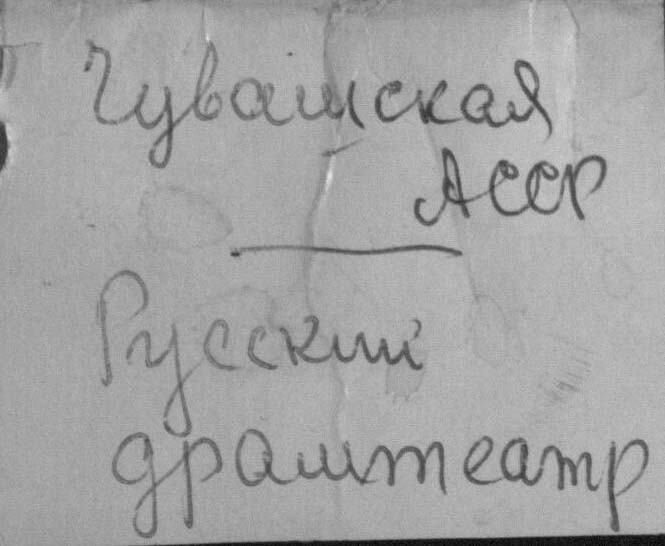 Чувашская
АССР
Русский
драмтеатр